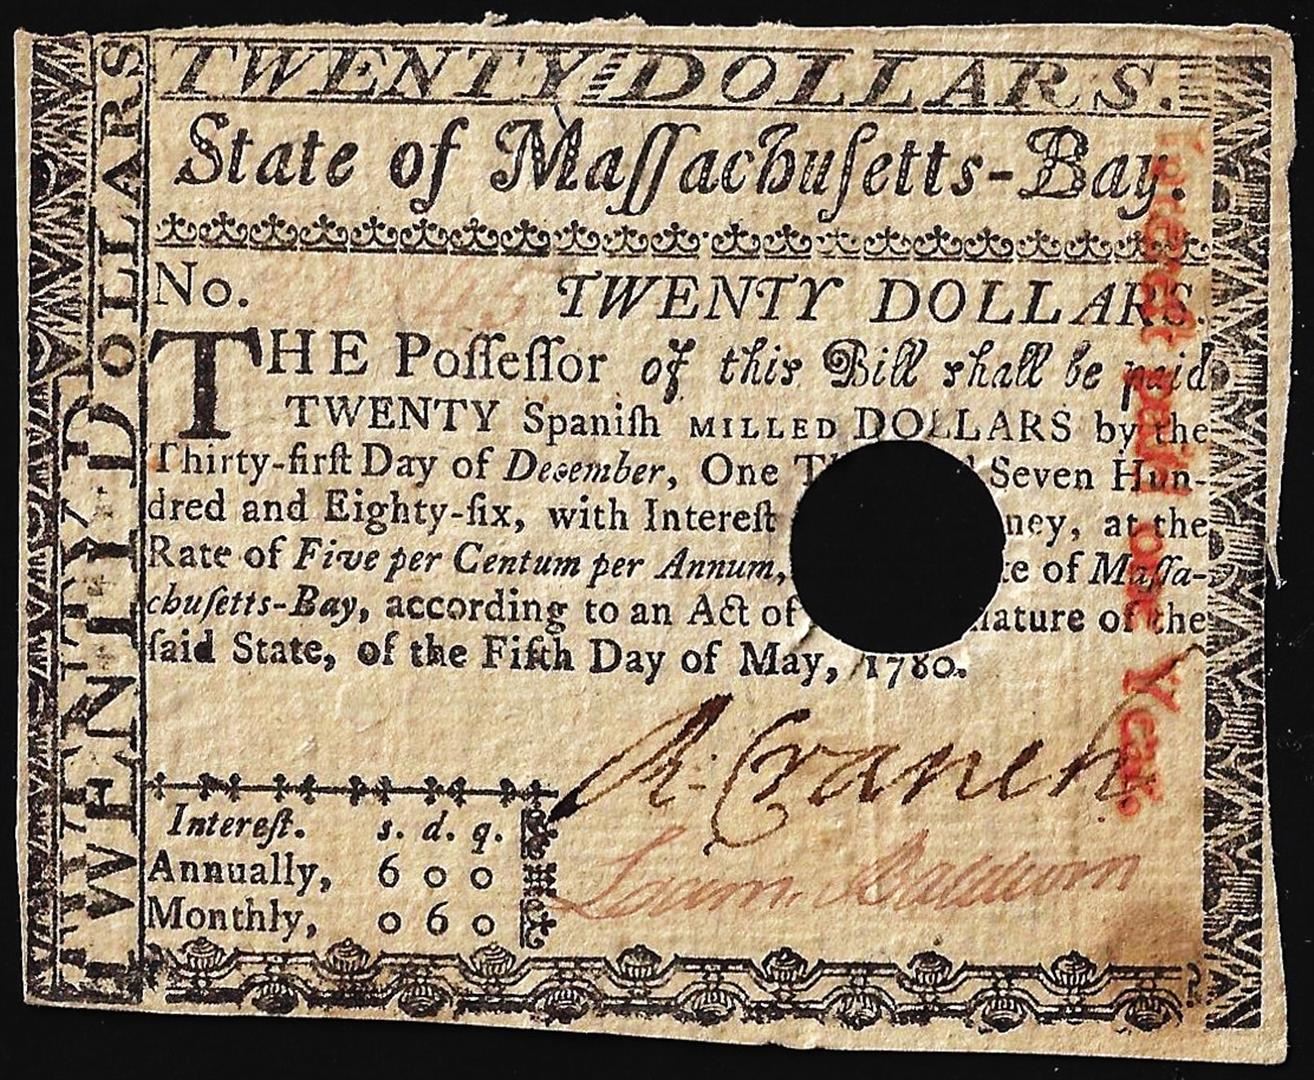 TWENTY DOLLARS.
State of Maſſachuſetts-Bay.
No. TWENTY DOLLARS.
THE Poſſeſſor of this Bill shall be paid
TWENTY Spaniſh MILLED DOLLARS by the
Thirty-firſt Day of December, One Seven Hun-
dred and Eighty-ſix, with Intereſt at the
Rate of Five per Centum per Annum, of Maſſa-
chuſetts-Bay, according to an Act of of the
ſaid State, of the Fifth Day of May, 1780.
R. Cranch
Loam. Baldwin
Intereſt. s. d. q.
Annually, 6 0 0
Monthly, 0 6 0
TWENTY DOLLARS
Intereſt paid one Year.